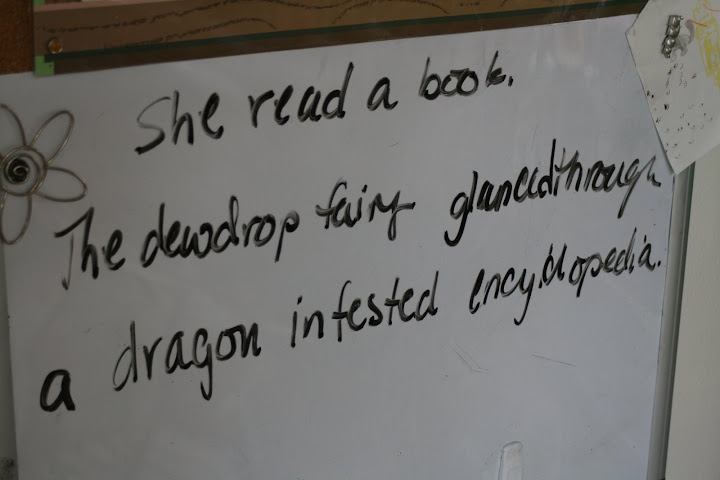 She read a book.
The dewdrop fairy glanced through
a dragon infested encyclopedia.